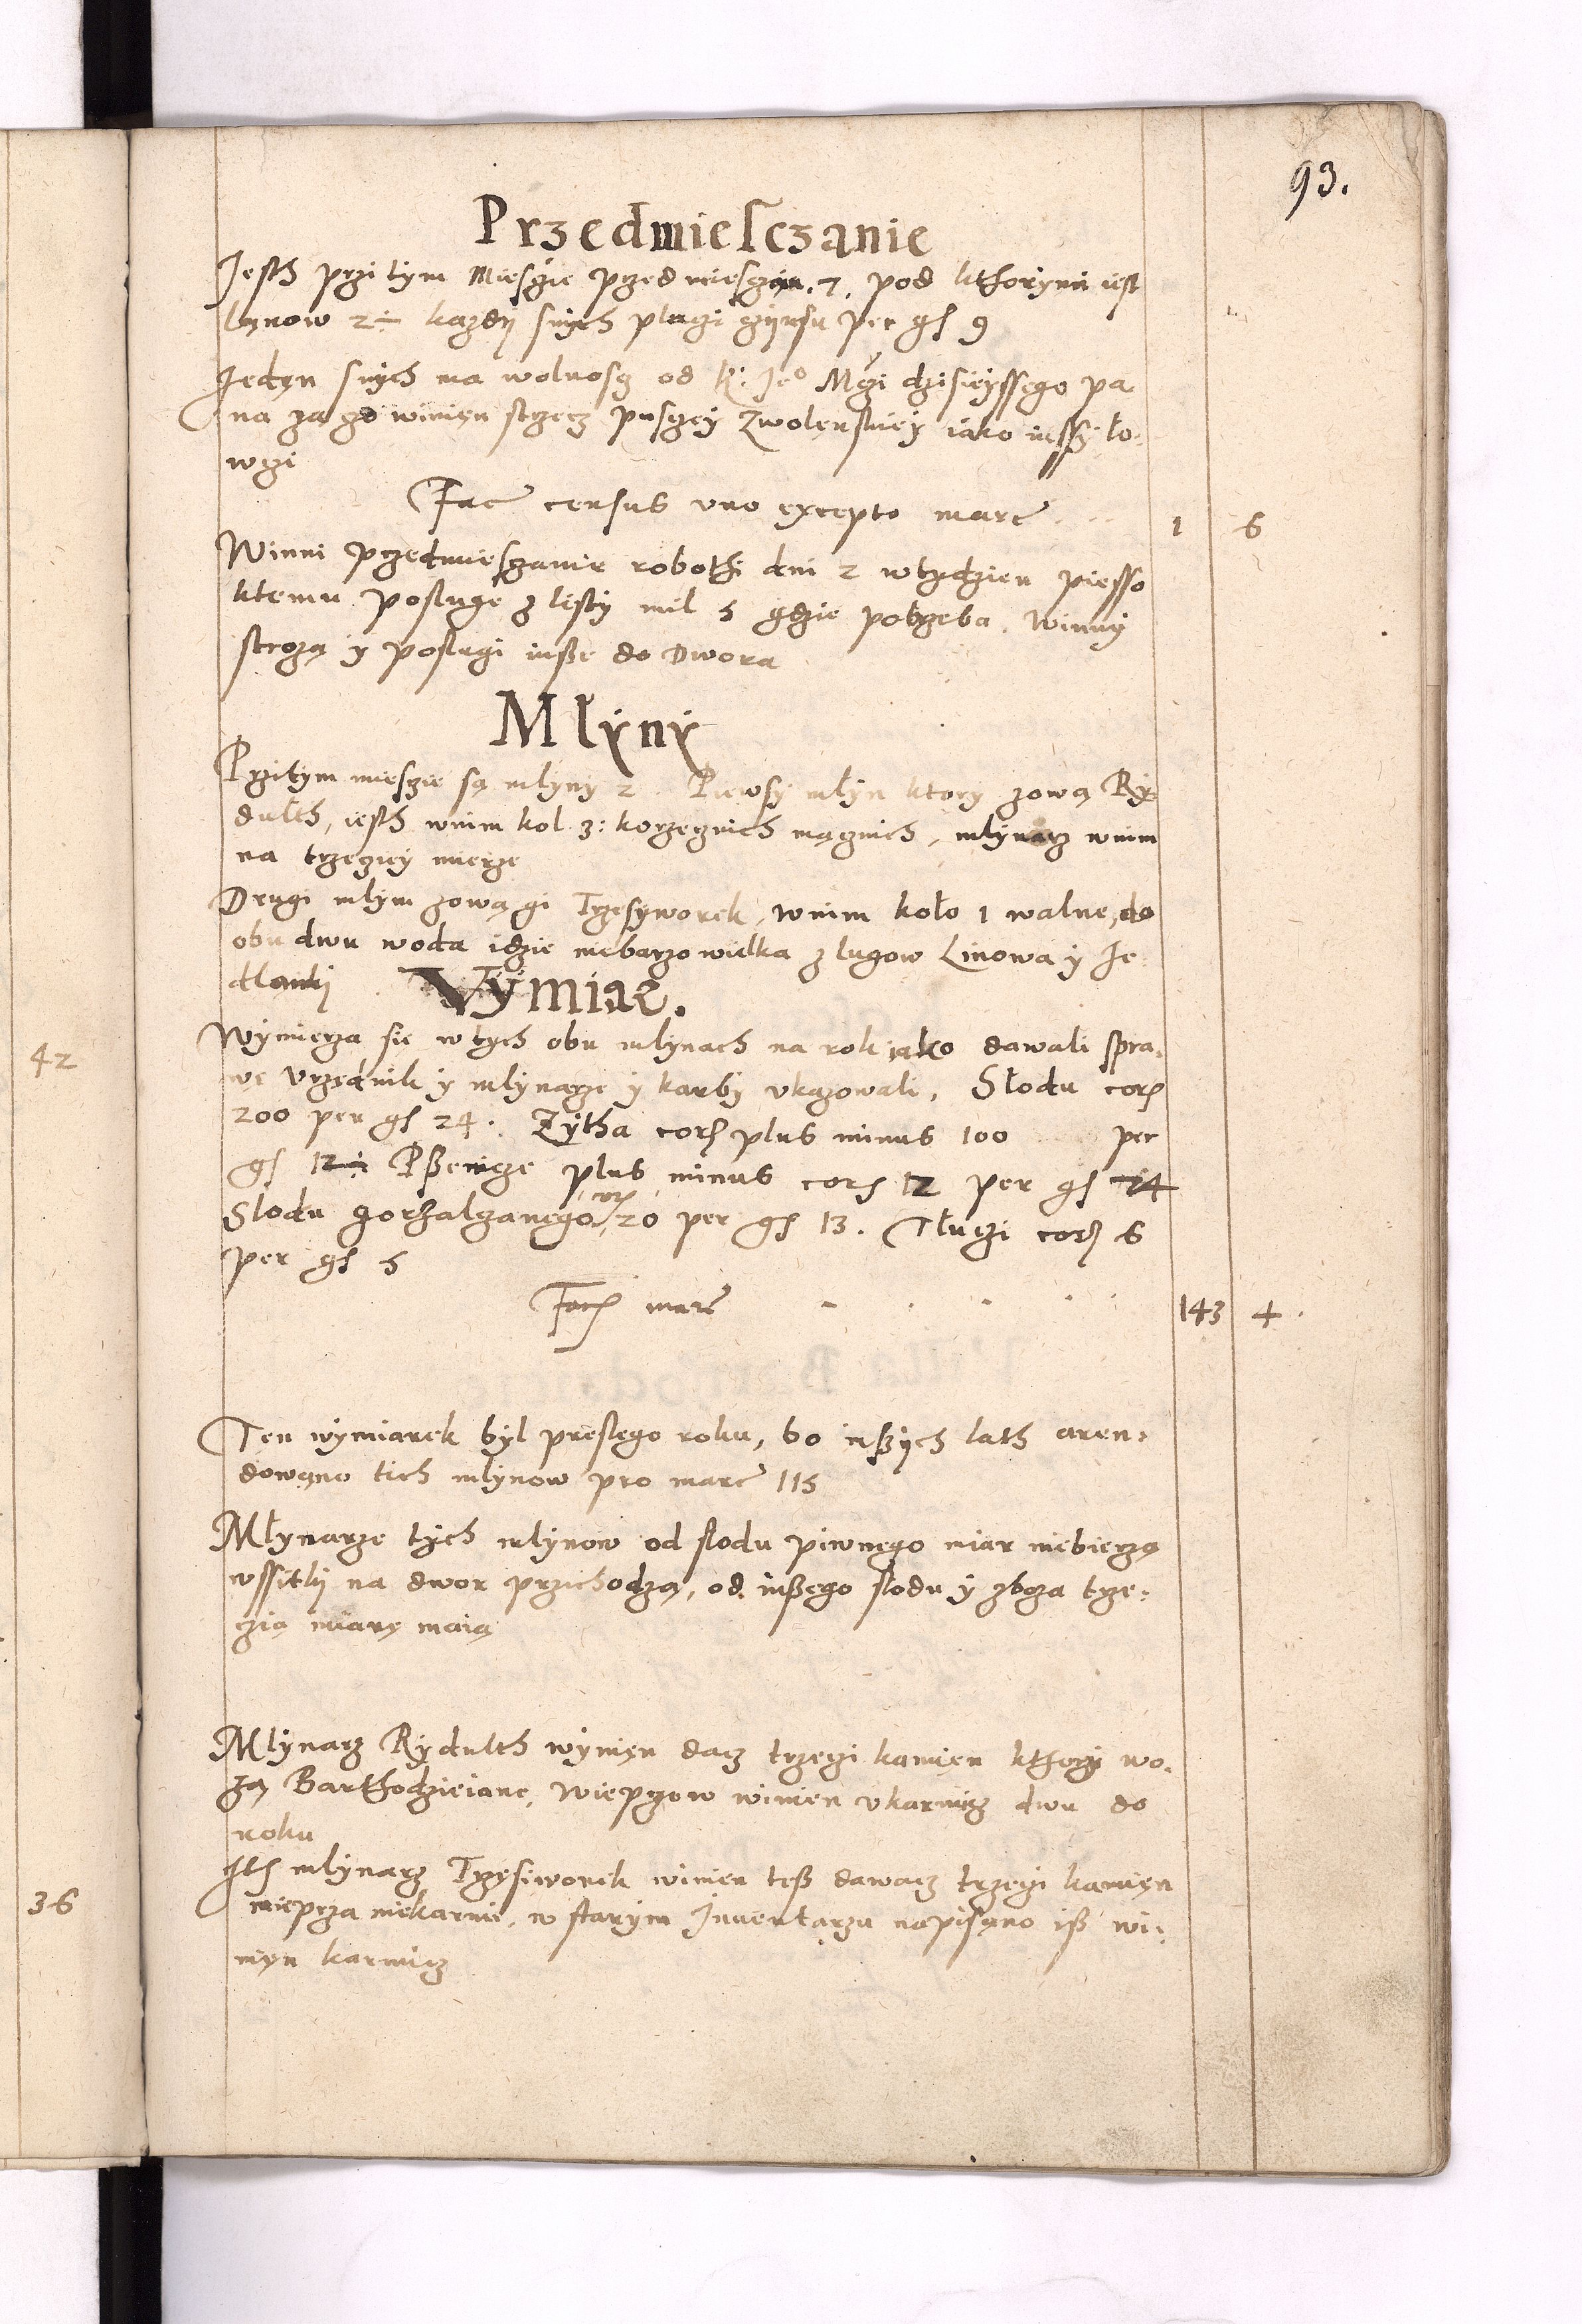 93.
Przedmiesczanie
Jesth przi tym Miesczie przedmiesczan. 7. pod kthorymi iest
łanow 2÷ kazdy snych placzi czynsu per gs 9
Jeden snych ma wolnoscz od K: Jeo Mczi dzisieyssego pa
na za zo winien strzecz pusczey Zwolenskiey iako inssy ło-
wczi
Fac census vno excepto marc . . . 1 6
Winni przedmiesczanie robothi dni 2 wtydzien piesso
ktemu posluge z listy mil 5 gdzie potrzeba. Winny
stroza y poslugi insze do Dwora
Młyny
Przitym miesczie są mlyny 2. Pierwsy mlyn ktory zową Ry
dulth, iesth wnim kol 3: korzecznich mącznich, mlynarz wnim
na trzeciey mierze
Drugi mlyn zową gi Trzesyworek, wnim koło 1 walne, do
obu dwu woda idzie niebarzo wielka z lugow Linowa y Je
dlanki
Vymiar.
Wymierza sie wtych obu mlynach na rok iako dawali spra-
we vrzednik y mlynarze y karby vkazowali. Słodu cor
200 per gs 24. Zytha cor plus minus 100 per
gs 12÷ Pszenicze plus minus cor 12 per gs 24
Slodu gorzalczanego cor 20 per gs 13. Tłuczi cor 6
per gs 5
Fac marc . . . . . 143 4 .
Ten wymiarek był przeslego roku, bo inszych lath aren-
dowano tich mlynow pro marc 115
Młynarze tych mlynow od slodu piwnego miar niebierzą
wssitki na dwor przichodzą, od inszego slodu y zboza trze-
czią miarę maią
Młynarz Rydulth wynien dacz trzeci kamien kthory wo-
zą Barthodzieiane, wieprzow winien vkarmicz dwu do
roku
Ite mlynarz Trzęsiworek winien tesz dawacz trzeci kamien
wieprza niekarmi, w starym Inuentarzu napisano isz wi-
nien karmicz
42
36